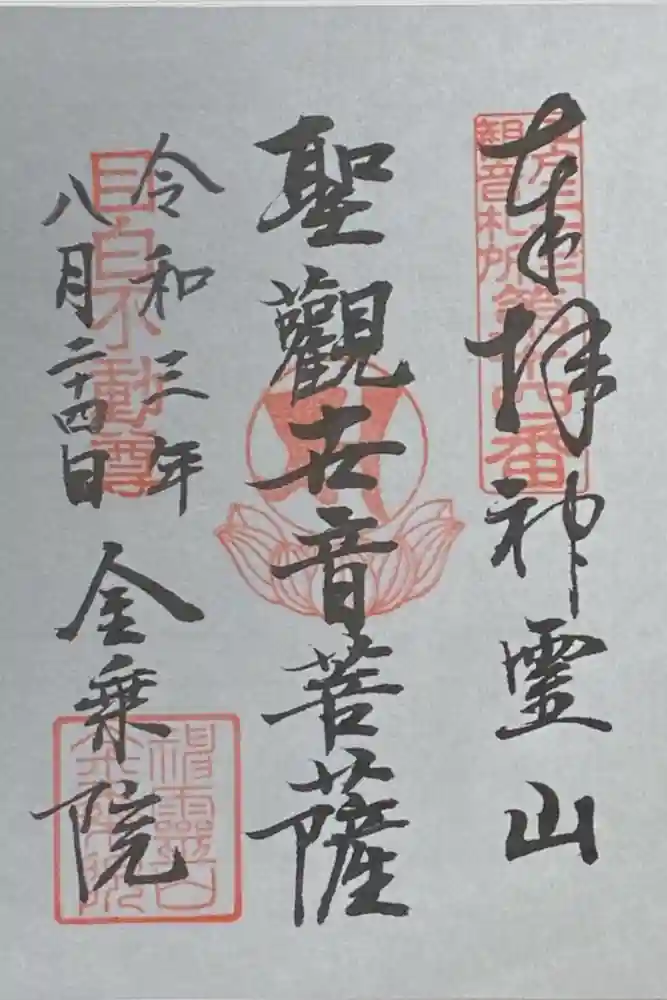 奉拝 神霊山
聖觀世音菩薩
令和三年
八月二十四日
金乗院
觀音札所第五十四番
目白不動尊